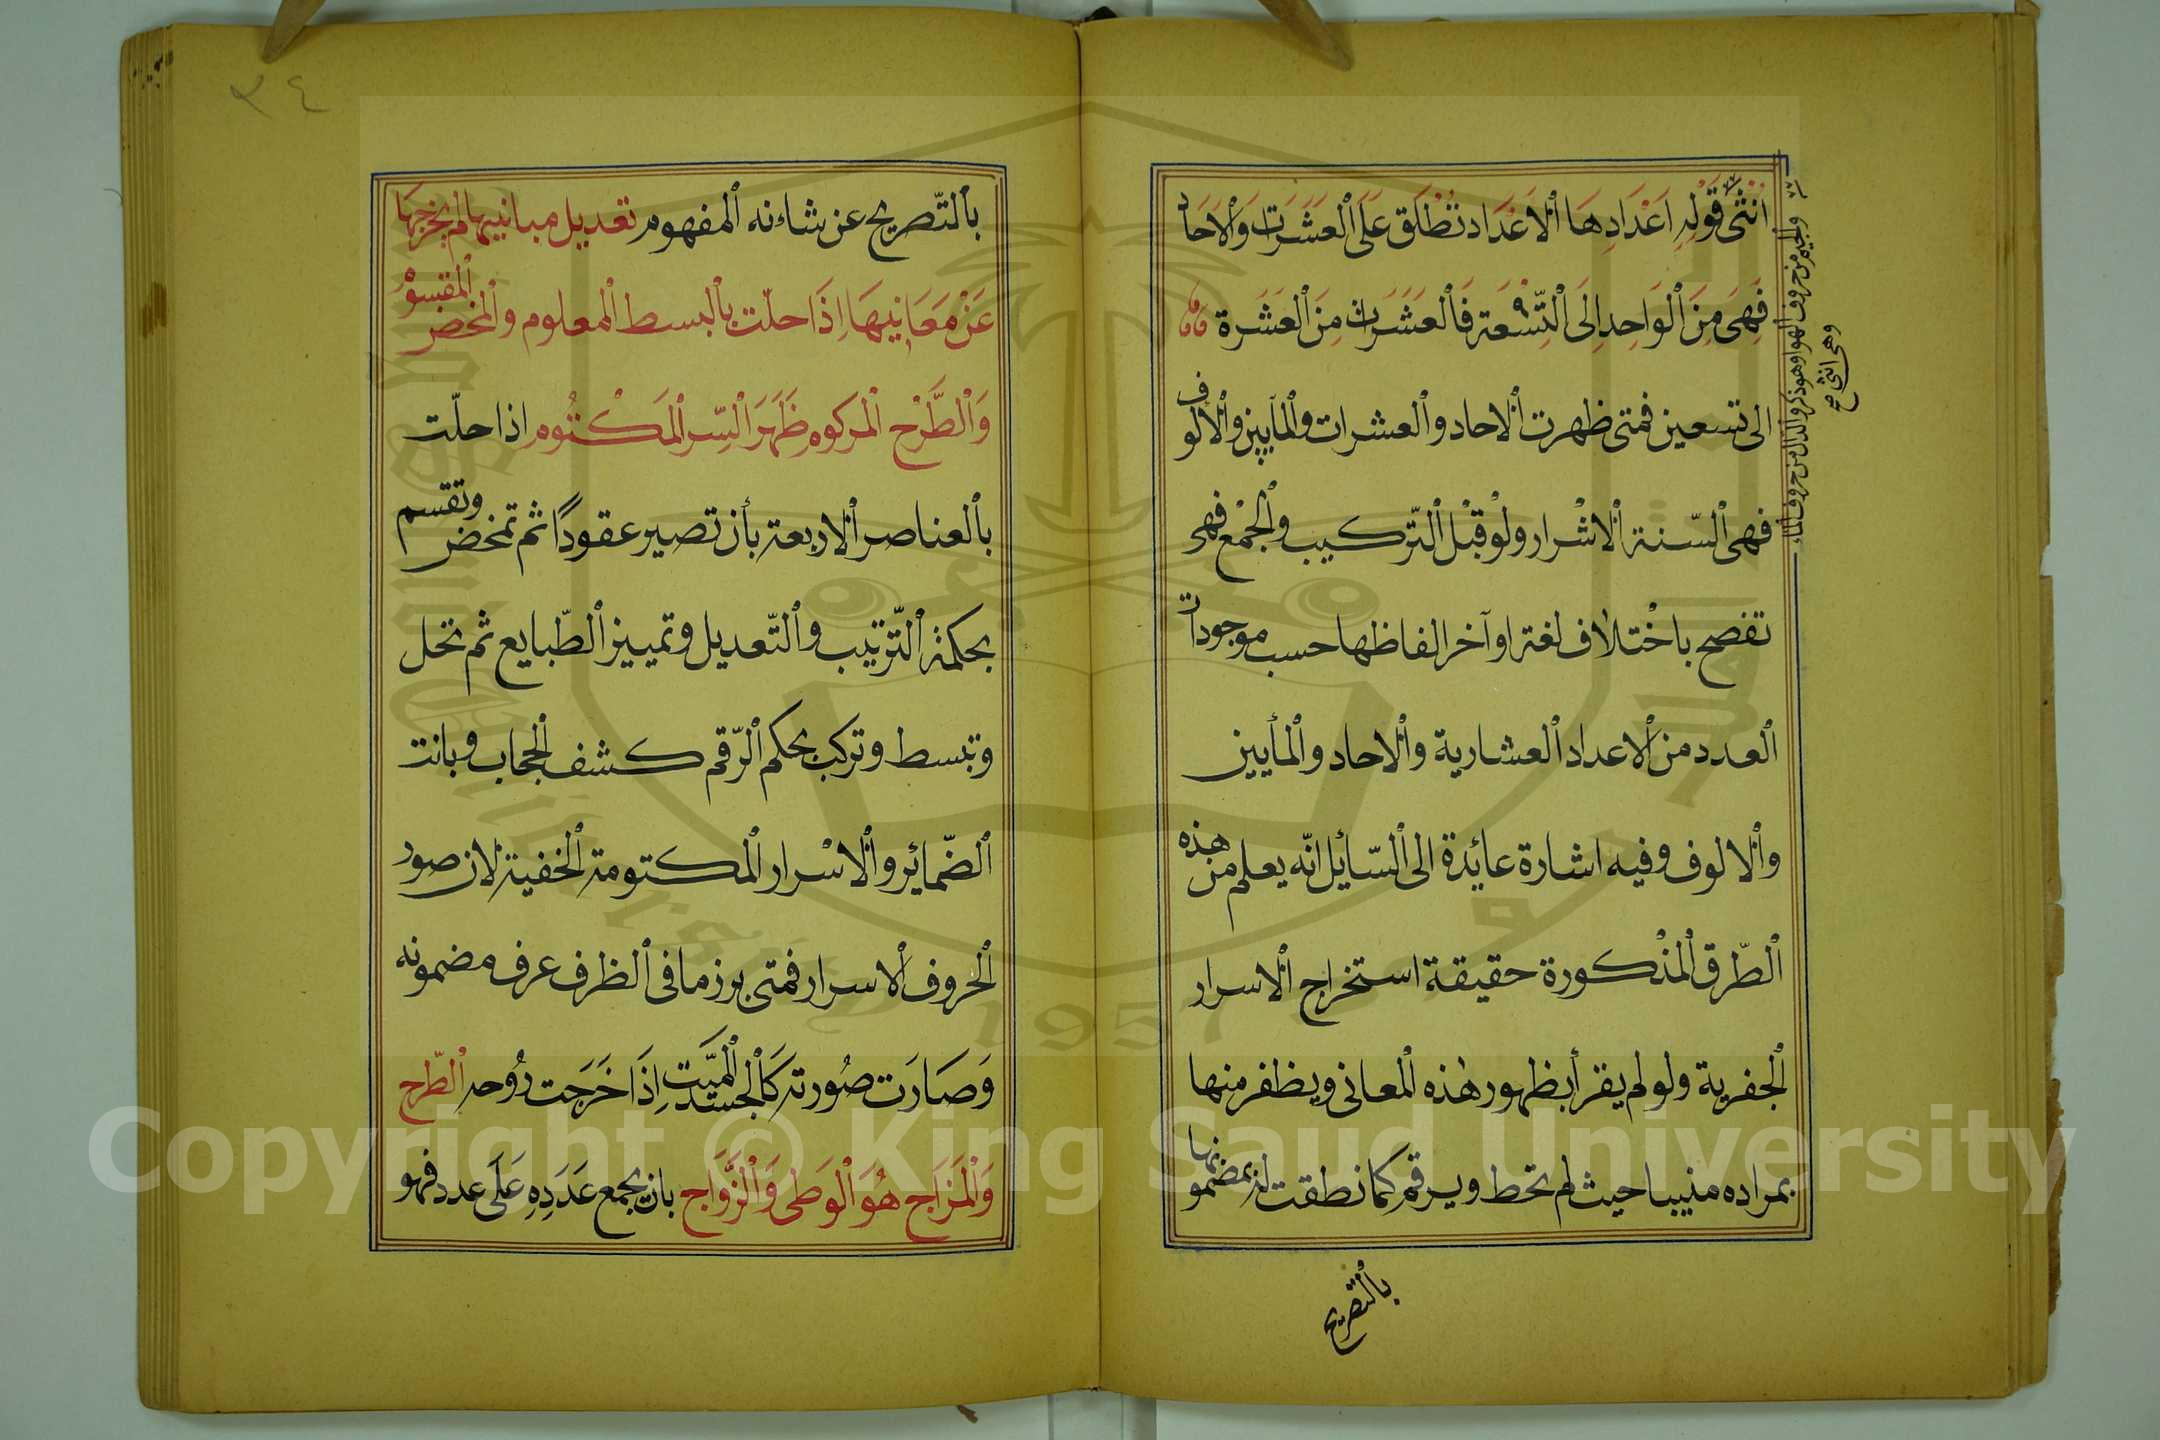 أنثى قَوْلِهِ اَعْدَادِهَا اَلْاَعْدَاد تُطْلَق عَلَى الْعَشَرَات وَالْاَحَاد
فَهِىَ مِنَ الْوَاحِدِ اِلَى التِّسْعَة فَالْعَشَرَات مِنَ الْعَشَرَة
الى تسعين فمتى ظهرت الاحاد والعشرات والمآيين والالوف
فهى السّنة الاسْرار ولَوْ قَبْل التّركيب والْجَمْع فهى
تفصح باخْتلاف لغة اوآخر الفاظها حسب موجودات
العدد من الاعداد العشارية والاحاد والمأيين
والالوف وفيه اشارة عائدة الى السّايل انّه يعلم من هذه
الطّرق المذْكورة حقيقة استخراج الاسرار
الجفرية ولو لم يقرأ بظهور هٰذه المعانى ويظفر منها
بمراده منيبا حيث لم تحط ويرقم كما نطقت له بمضمونها
بالتصريح
والجيم من حروف الهوا وهو ذكر والدال من حروف الماء
وهى انثى صح
٣٤
بالتّصريح عن شاءنه المفهوم تعديل مبانيها لم يخرجها
عَنْ مَعَانِيهَا اِذَا حلّت بالبسط المعلوم والمخض المقسوم
وَالطَّرْح المركوم ظَهَرَ السِّر الْمَكْتُوم اذا حلّت
بالعناصر الاربعة بأن تصير عقودًا ثم تمخض وتقسم
بحكمة التّرتيب والتّعديل وتمييز الطّبايع ثم تحل
وتبسط وتركب بحكم الرّقم كشف الحجاب وبانت
الضّمائر والاسْرار المكتومة الخفية لان صور
الحروف الاسرار فمتى برز ما فى الظرف عرف مضمونه
وَصَارَت صُورته كَالْجَسَد الْمَيّت اِذَا خَرَجَت رُوحه الطّرح
وَالْمَزَاج هُوَ الْوَطى وَالزَّوَاج بان يجمع عَدَدِهِ عَلَى عدد فهو
Copyright © King Saud University
1957